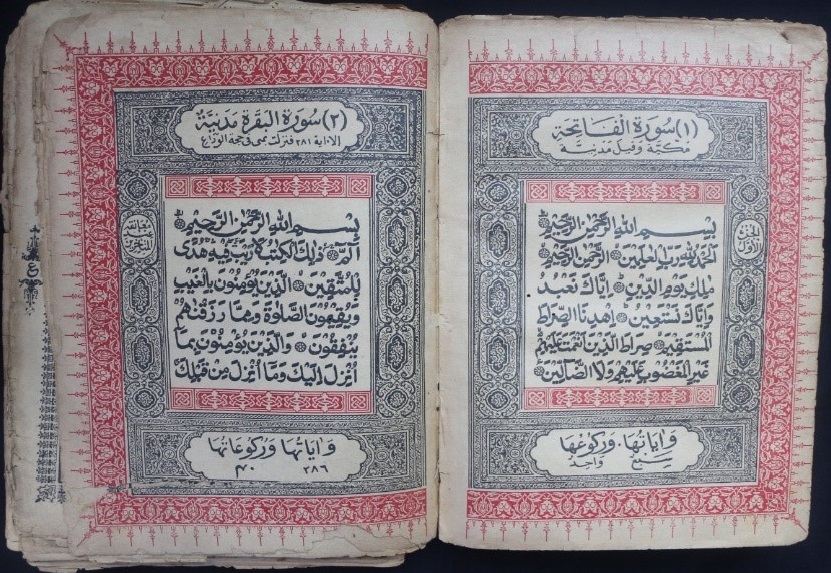 (١) سورة الفاتحة
مكية وقيل مدنية
بِسْمِ اللهِ الرَّحْمٰنِ الرَّحِيْمِ
اَلْحَمْدُ لِلّٰهِ رَبِّ الْعٰلَمِيْنَ الرَّحْمٰنِ الرَّحِيْمِ
مٰلِكِ يَوْمِ الدِّيْنِ اِيَّاكَ نَعْبُدُ
وَاِيَّاكَ نَسْتَعِيْنُ اِهْدِنَا الصِّرَاطَ
الْمُسْتَقِيْمَ صِرَاطَ الَّذِيْنَ اَنْعَمْتَ عَلَيْهِمْ
غَيْرِ الْمَغْضُوْبِ عَلَيْهِمْ وَلَا الضَّآلِّيْنَ
الجزء الاول
واياتها وركوعها
سبع واحد
(٢) سورة البقرة مدنية
الا اية ٢٨١ فنزلت بمنى في حجة الوداع
بِسْمِ اللهِ الرَّحْمٰنِ الرَّحِيْمِ
الٓمّٓ ذٰلِكَ الْكِتٰبُ لَا رَيْبَ فِيْهِ هُدًى
لِّلْمُتَّقِيْنَ الَّذِيْنَ يُؤْمِنُوْنَ بِالْغَيْبِ
وَيُقِيْمُوْنَ الصَّلٰوةَ وَمِمَّا رَزَقْنٰهُمْ
يُنْفِقُوْنَ وَالَّذِيْنَ يُؤْمِنُوْنَ بِمَا
اُنْزِلَ اِلَيْكَ وَمَا اُنْزِلَ مِنْ قَبْلِكَ
واياتها وركوعاتها
٢٨٦ ٤٠
ع